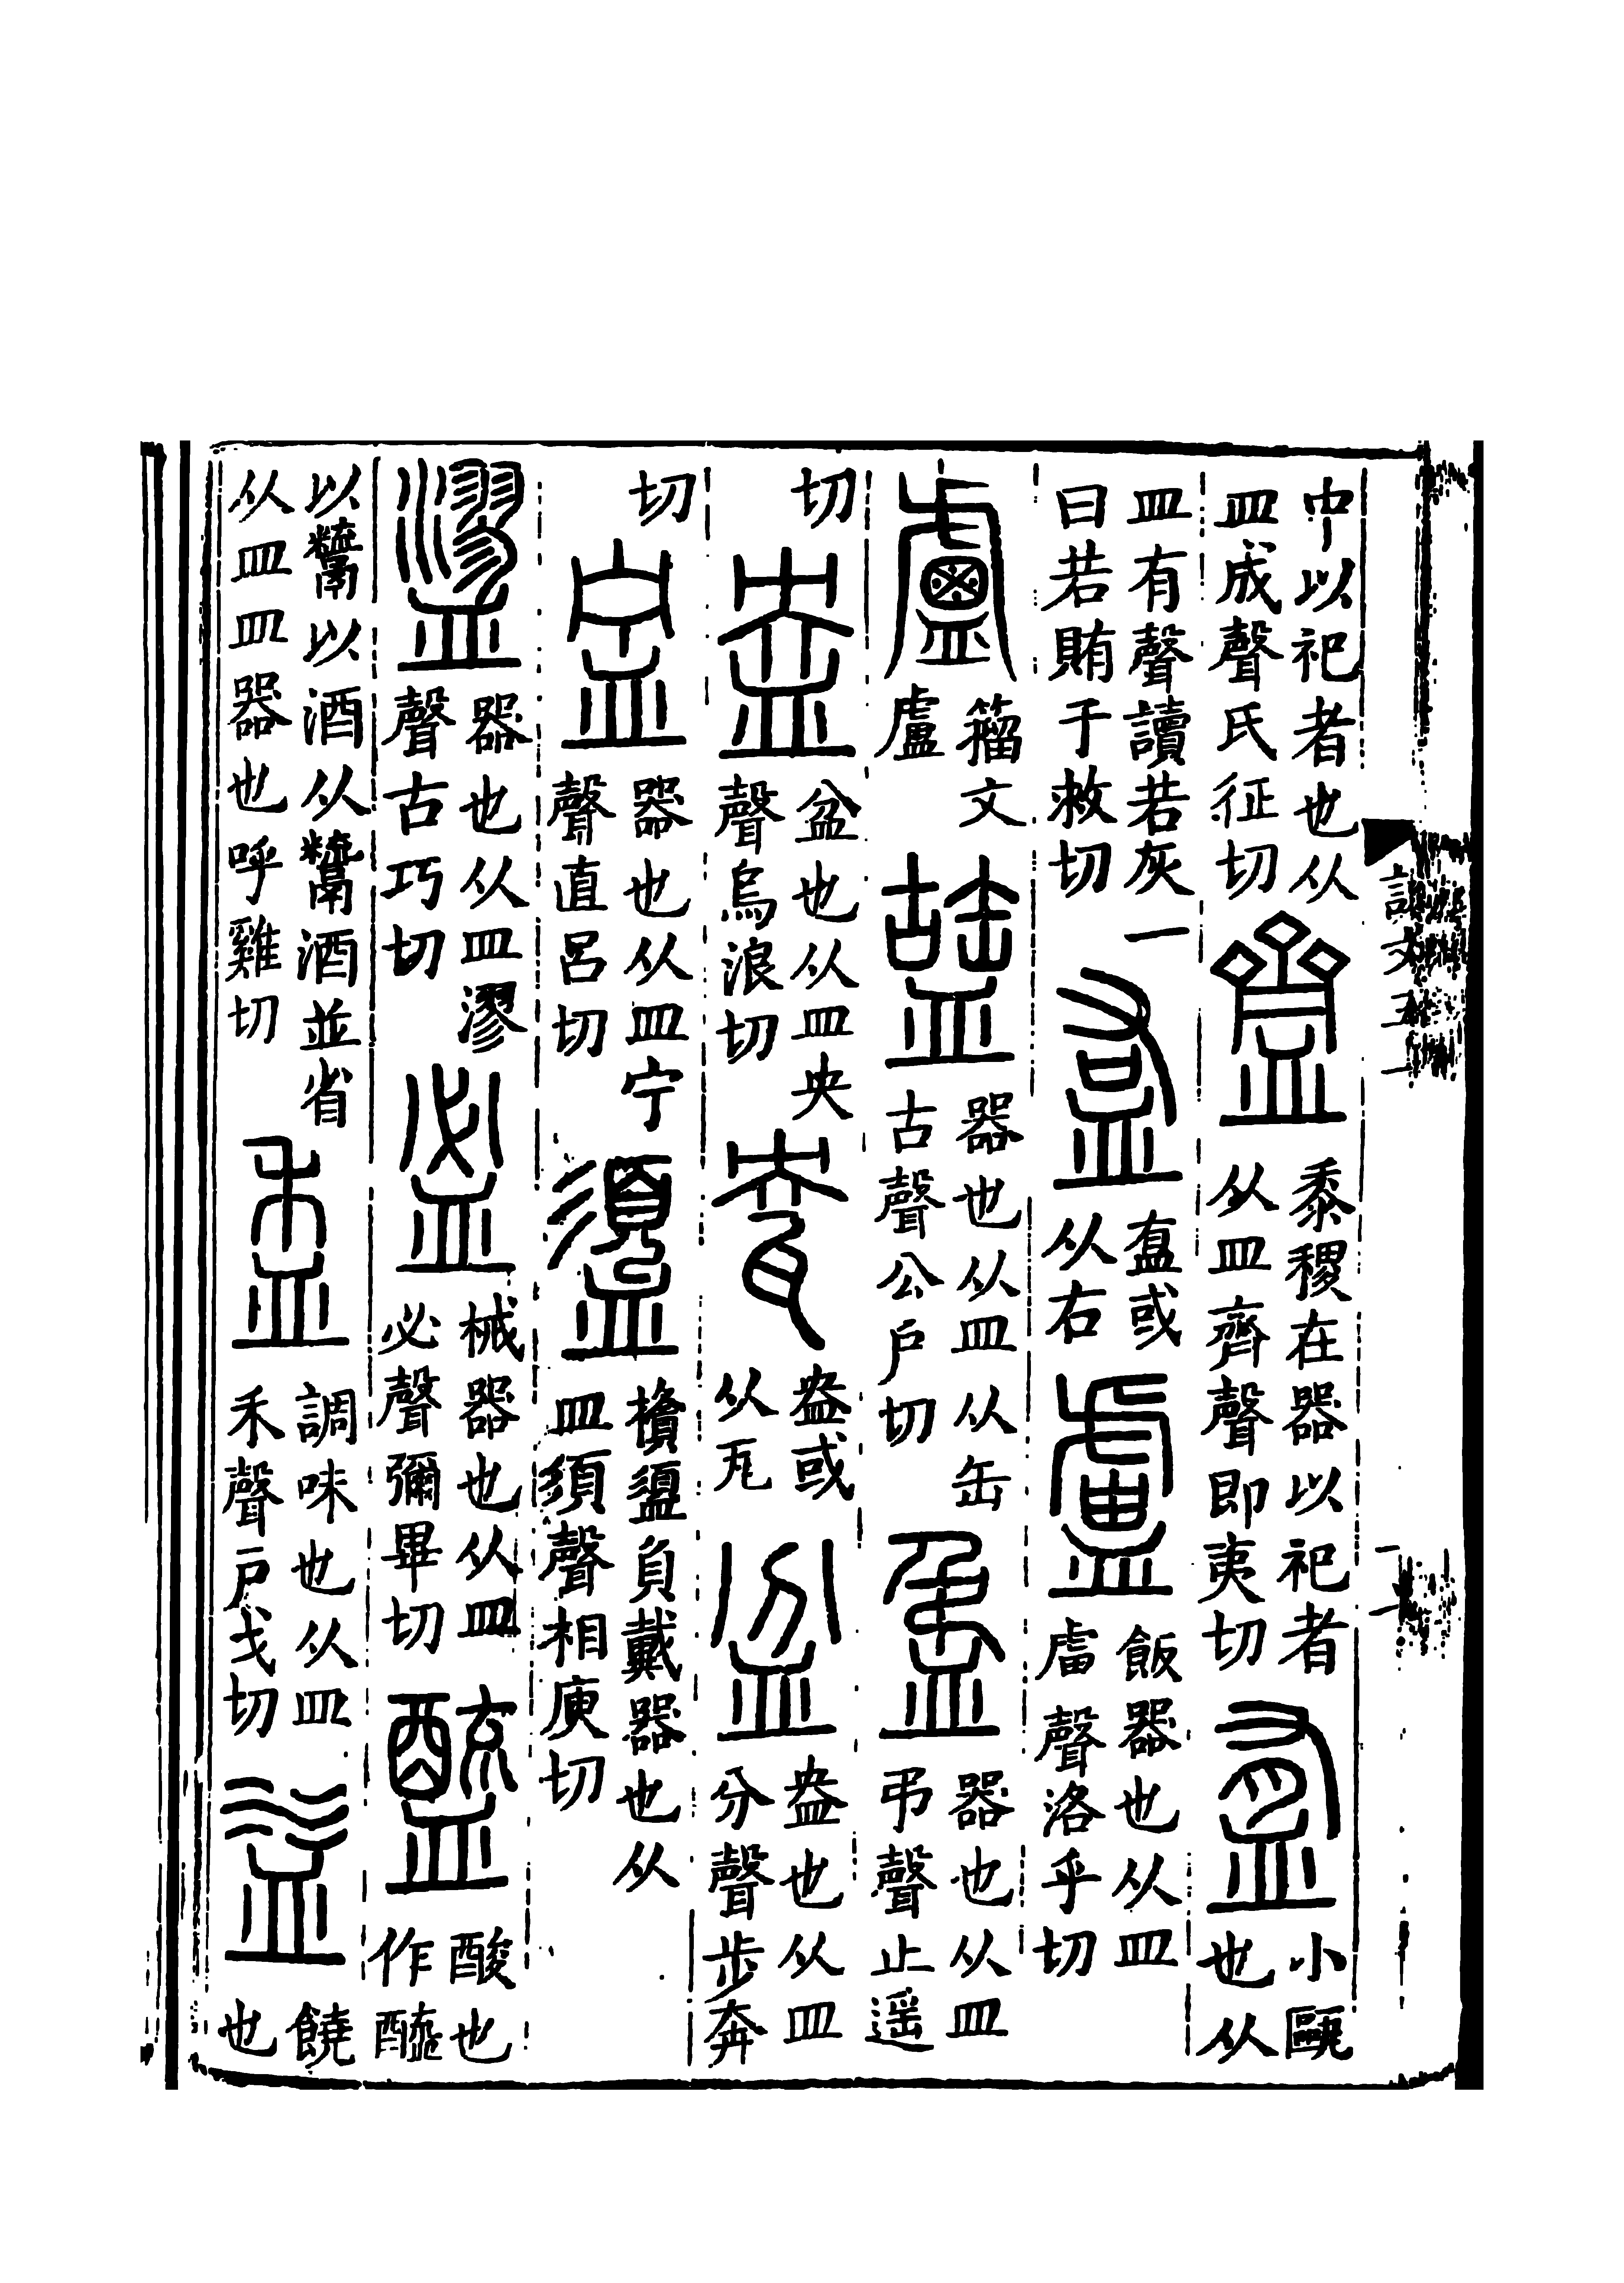 中以祀者也从皿成聲氏征切 𪗉 黍稷在器以祀者从皿齊聲即夷切 𥁓 小甌也从
皿有聲讀若灰一曰若賄于救切 㿽 𥁓或从右 盧 飯器也从皿𧆨聲洛乎切
𥂗 籀文盧 𥁹 器也从皿从缶古聲公戶切 𥁮 器也从皿弔聲止遥
切 盎 盆也从皿央聲烏浪切 㼜 盎或从瓦 盆 盎也从皿分聲步奔
切 㿾 器也从皿宁聲直呂切 盨 檳盨負戴器也从皿須聲相庾切
𥂔 器也从皿漻聲古巧切 𥁑 械器也从皿必聲彌畢切 醯 酸也作醯
以鬻以酒从鬻酒並省从皿皿器也呼雞切 盉 調味也从皿禾聲戶戈切 益 饒也
説文五上